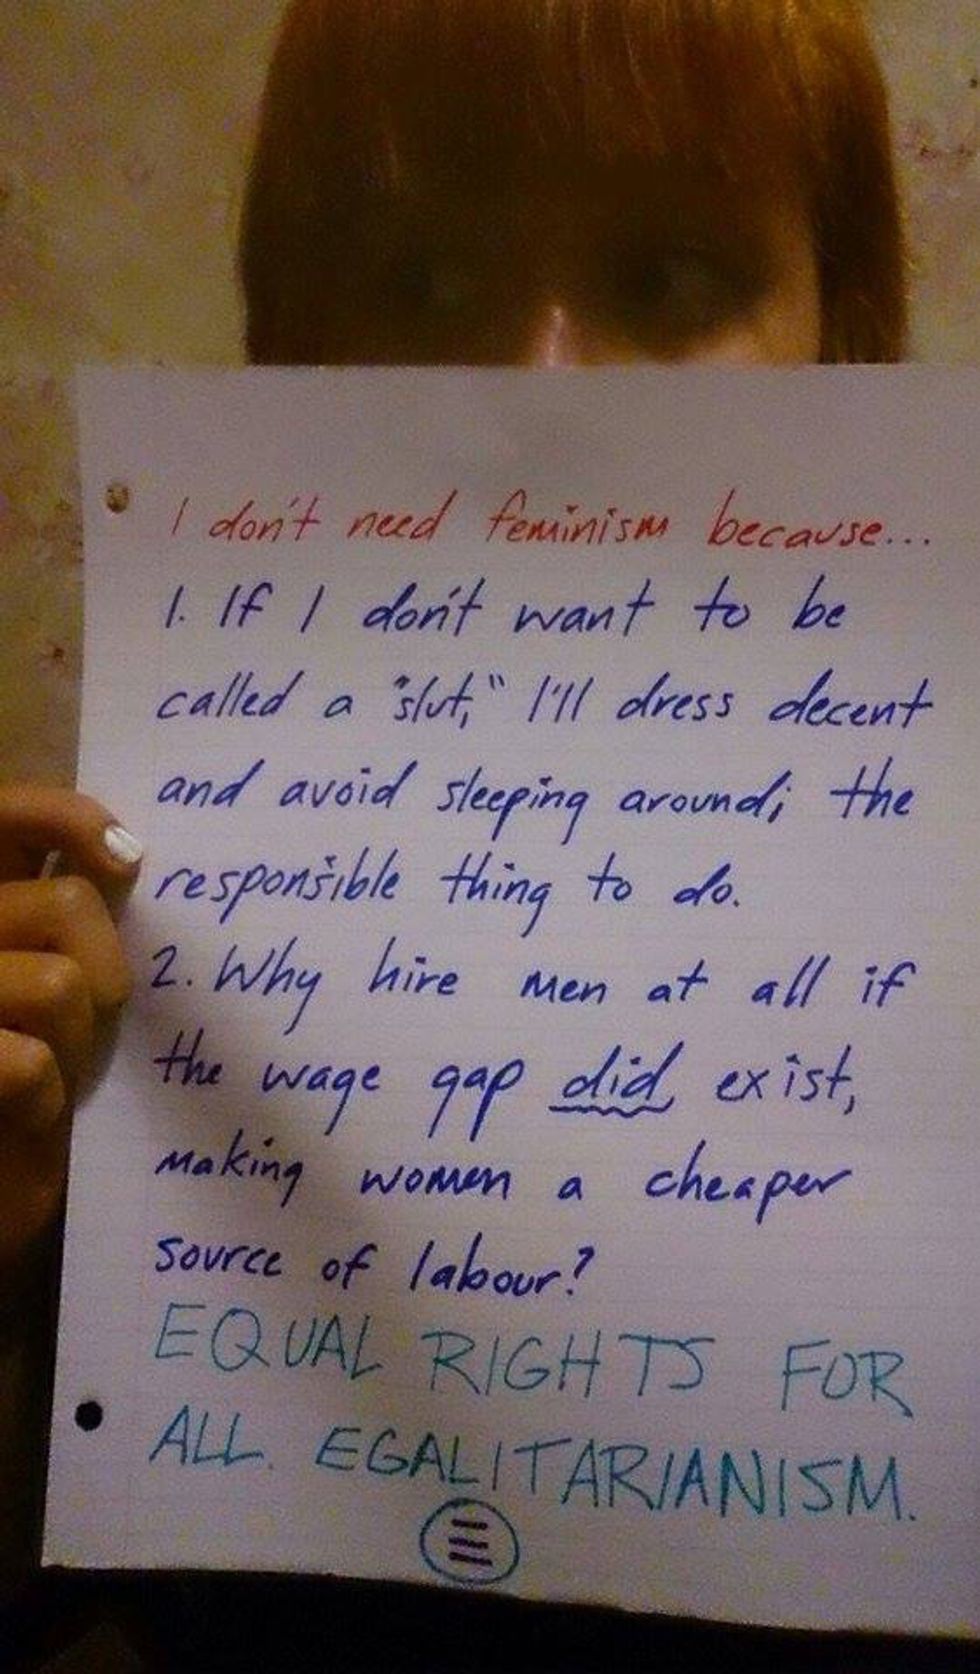 I don't need feminism because...
1. If I don't want to be
called a "slut," I'll dress decent
and avoid sleeping around; the
responsible thing to do.
2. Why hire men at all if
the wage gap did exist,
making women a cheaper
source of labour?
EQUAL RIGHTS FOR
ALL. EGALITARIANISM.